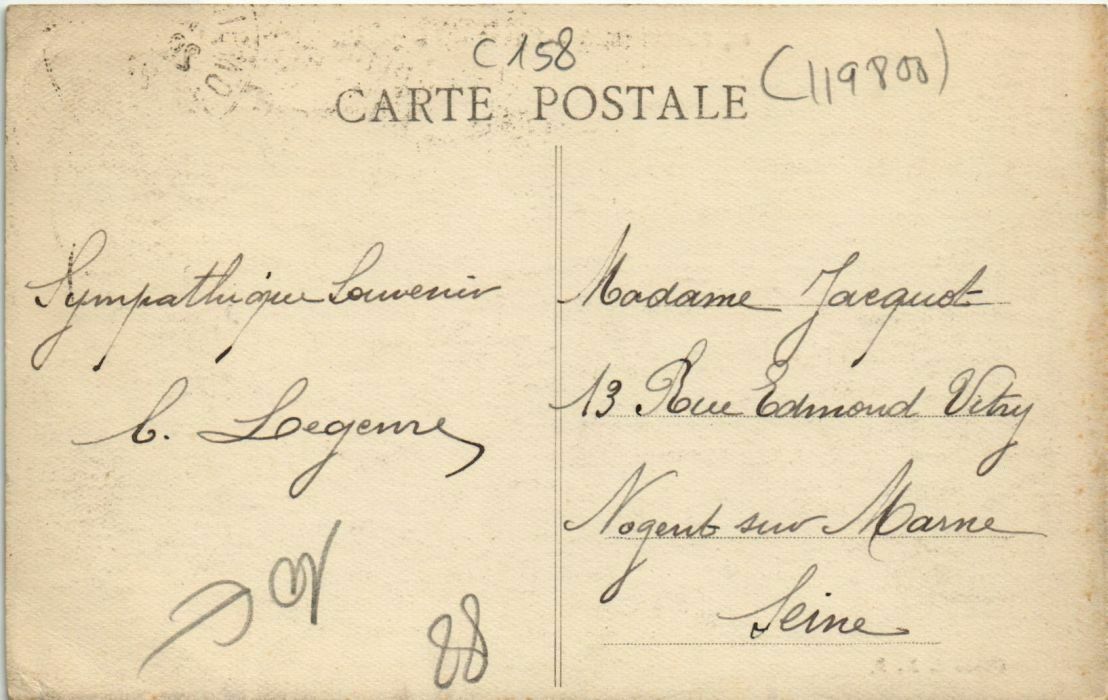 C 158
(119800)
CARTE POSTALE
Sympathique Souvenir
Madame Jacquot
13 Rue Edmond Vitry
Nogent sur Marne
Seine
88